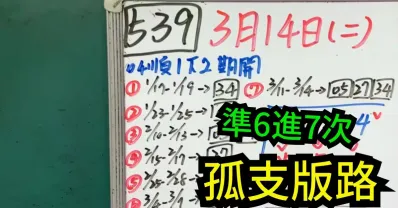 539 3月14日(二)
04順1下2期開
① 1/17-1/19→34 ⑦ 3/11-3/14→05 27 34
② 1/23-1/25→
準6進7次
③ 2/10-2/13→
④ 2/15-2/17→
孤支版路
⑤ 2/25-2/28→
⑥ 3/4-3/9→